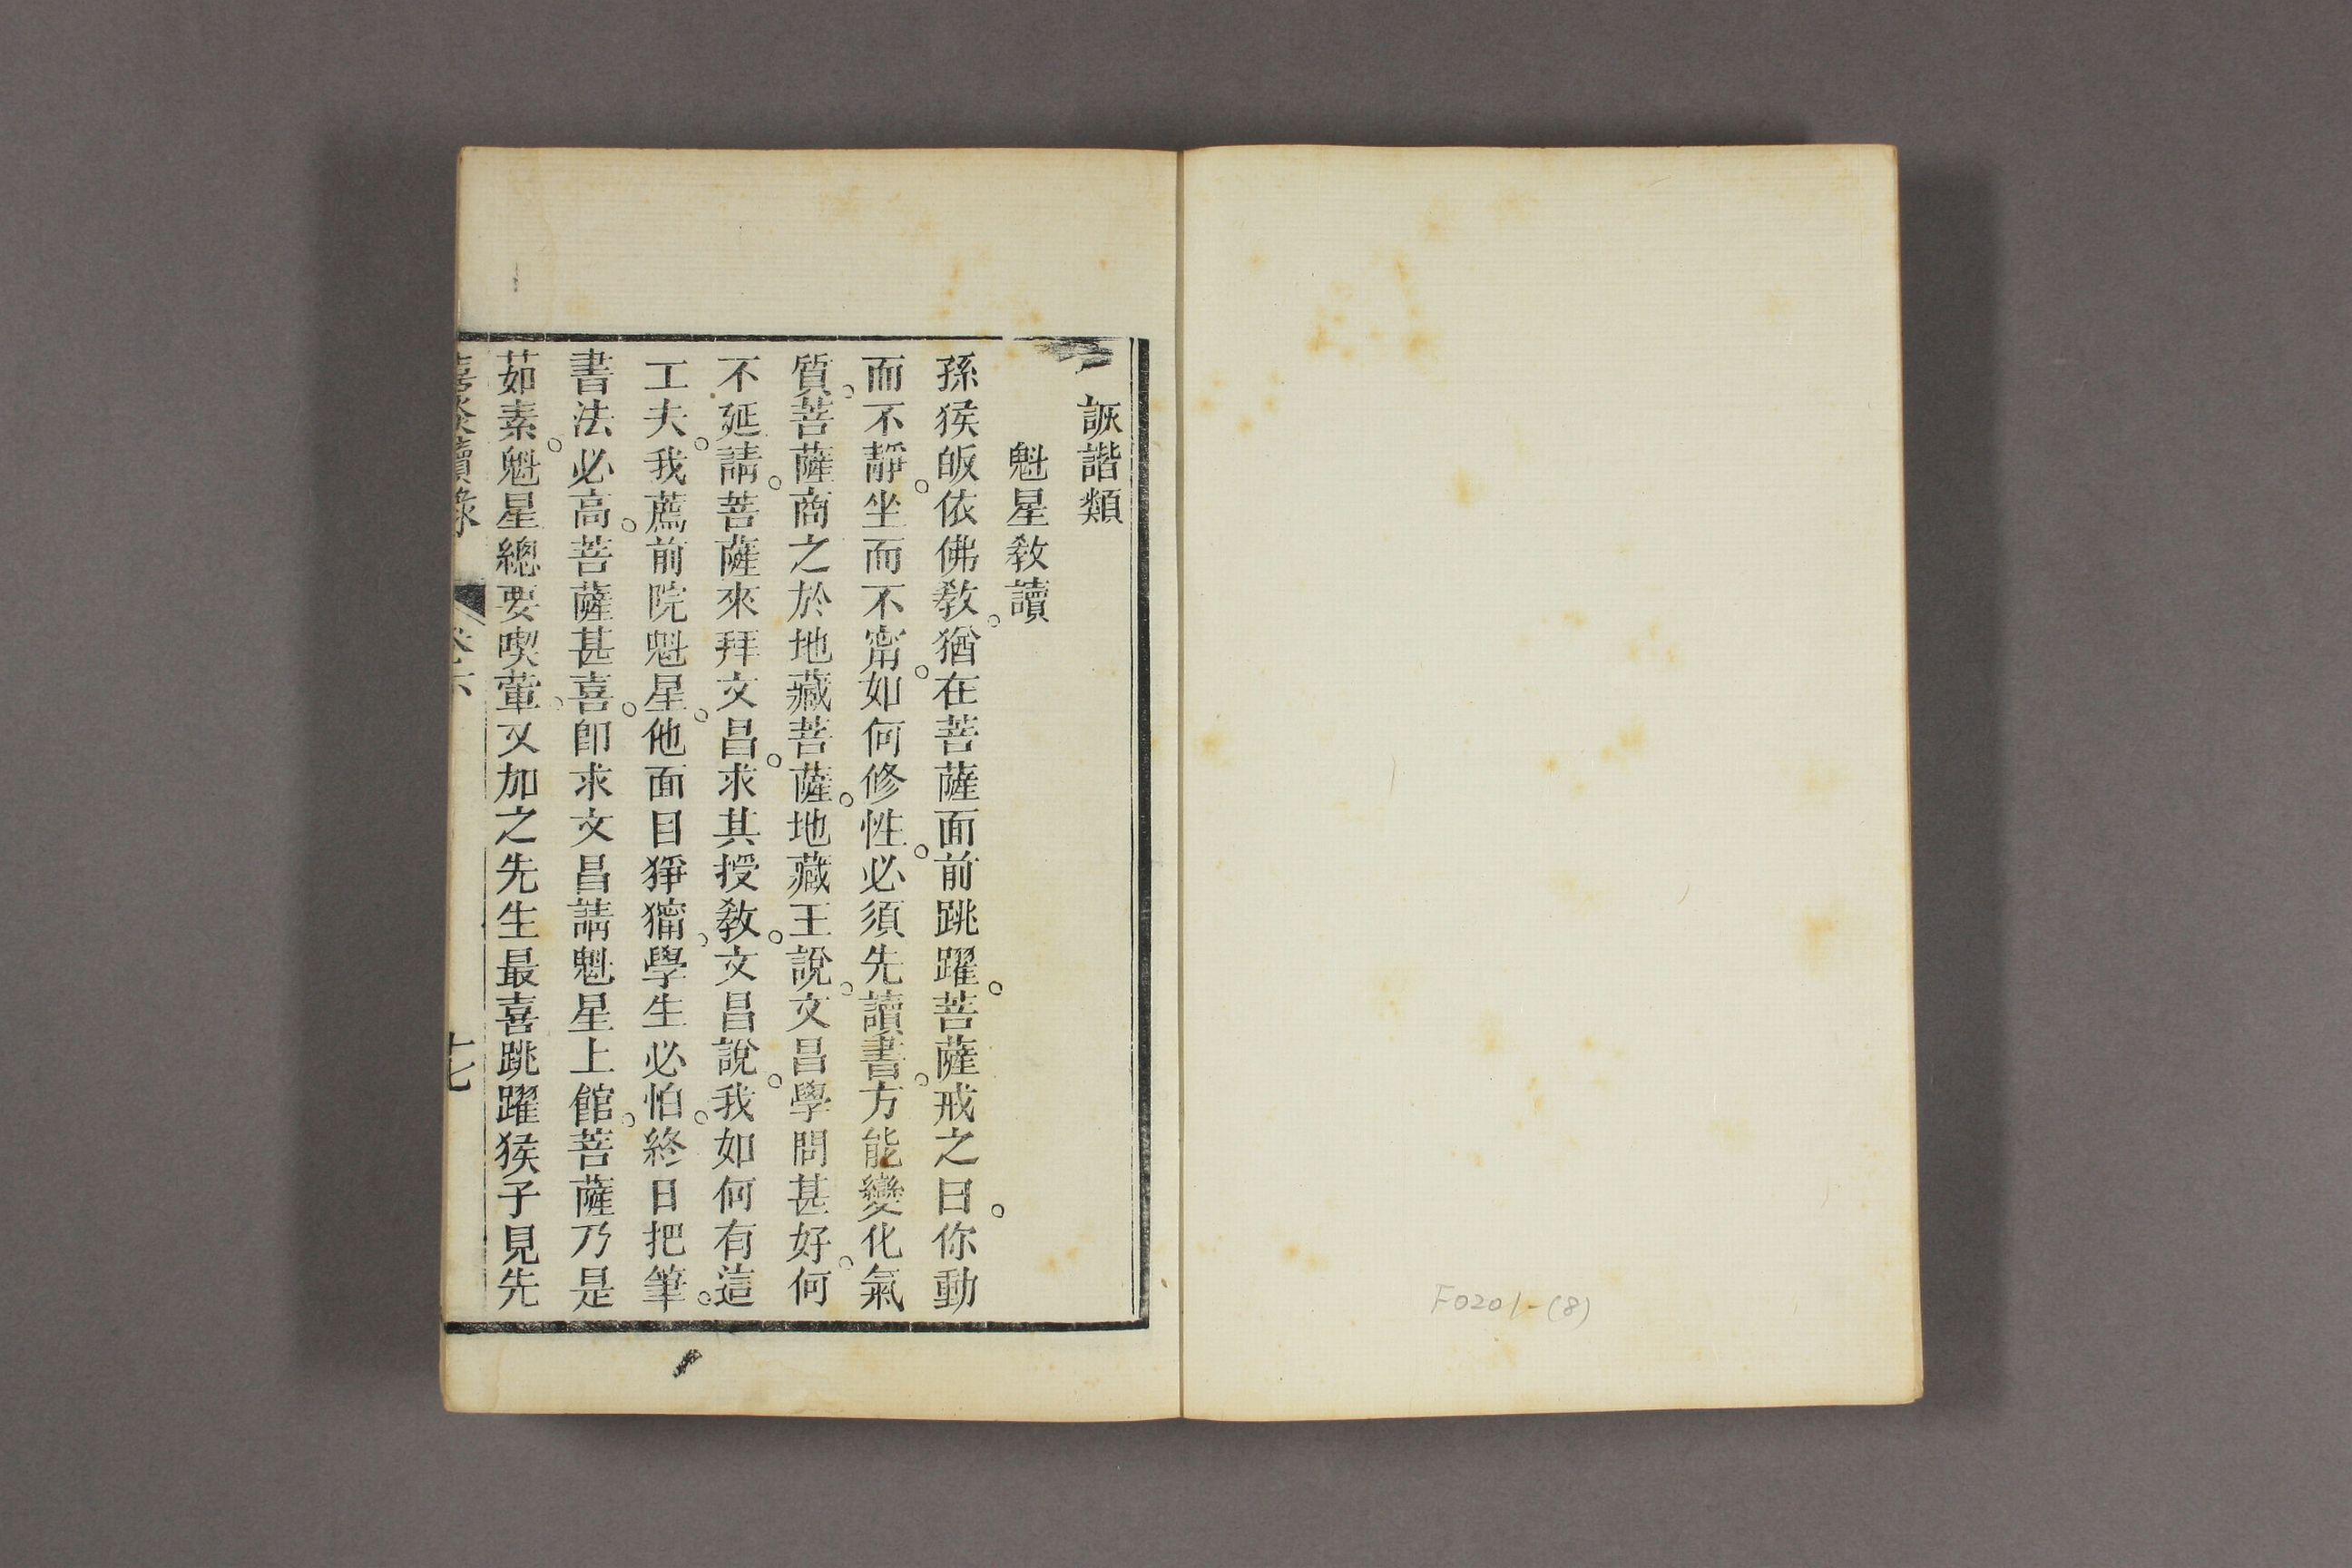 詼諧類
魁星敎讀
孫猴皈依佛敎。猶在菩薩面前跳躍。菩薩戒之曰。你動
而不靜。坐而不甯。如何修性。必須先讀書。方能變化氣
質。菩薩商之於地藏菩薩。地藏王說。文昌學問甚好。何
不延請。菩薩來拜文昌。求其授敎。文昌說。我如何有這
工夫。我薦前院魁星。他面目猙獰。學生必怕。終日把筆。
書法必高。菩薩甚喜。卽求文昌請魁星上館。菩薩乃是
茹素。魁星總要喫葷。又加之先生最喜跳躍猴子見先
嘻談續錄 卷六 十七
F0201-(8)